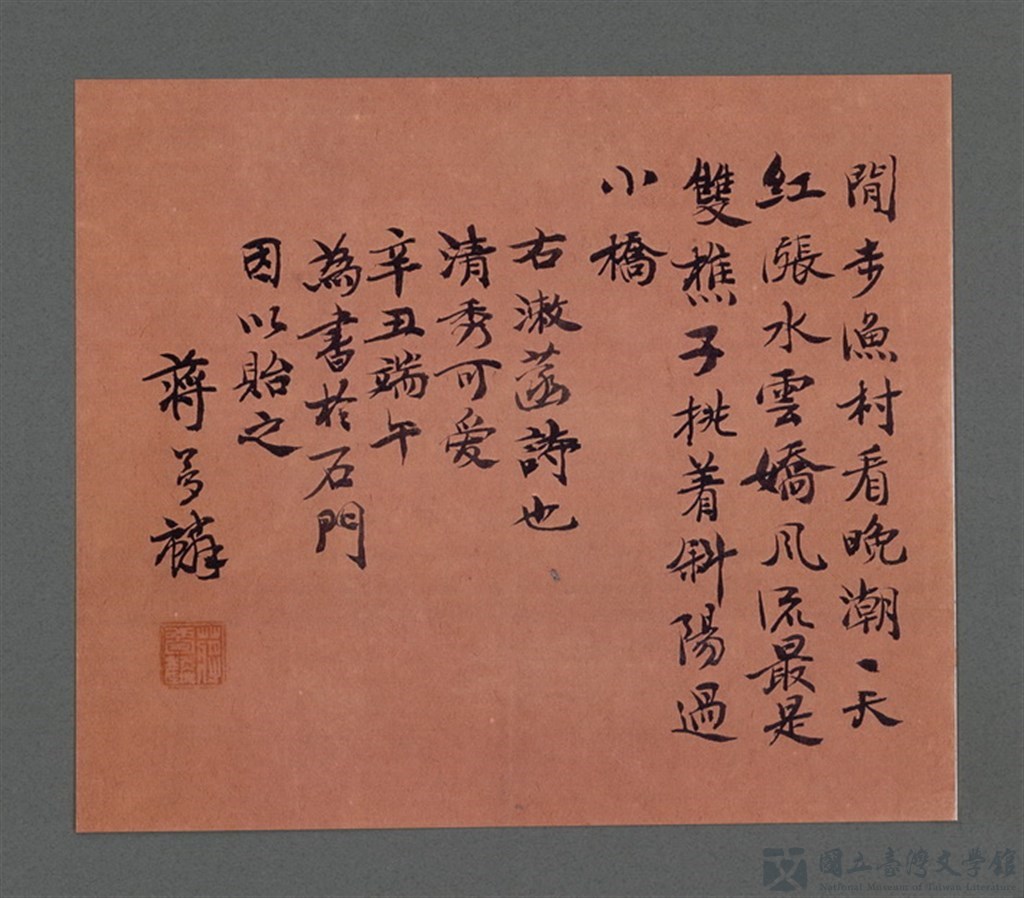 閒步漁村看晚潮一天
紅漲水雲嬌風流最是
雙樵子挑着斜陽過
小橋
右漱菡詩也
清秀可爱
辛丑端午
為書於石門
因以貽之
蔣夢麟
國立臺灣文學館
National Museum of Taiwan Literature